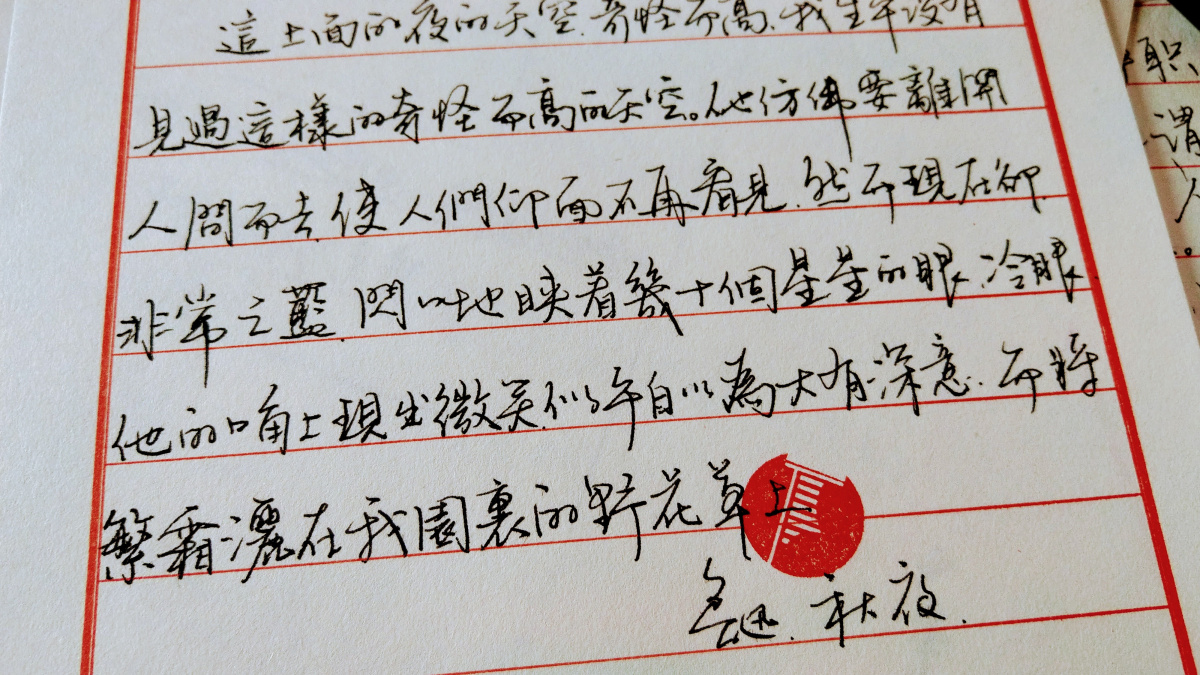 這上面的夜的天空,奇怪而高,我生平沒有
見過這樣的奇怪而高的天空。他仿佛要離開
人間而去,使人們仰面不再看見.然而現在卻
非常之藍,閃閃地䀹着幾十個星星的眼,冷眼.
他的口角上現出微笑,似乎自以為大有深意.而將
繁霜灑在我園裏的野花草上
魯迅.秋夜.
职
谓